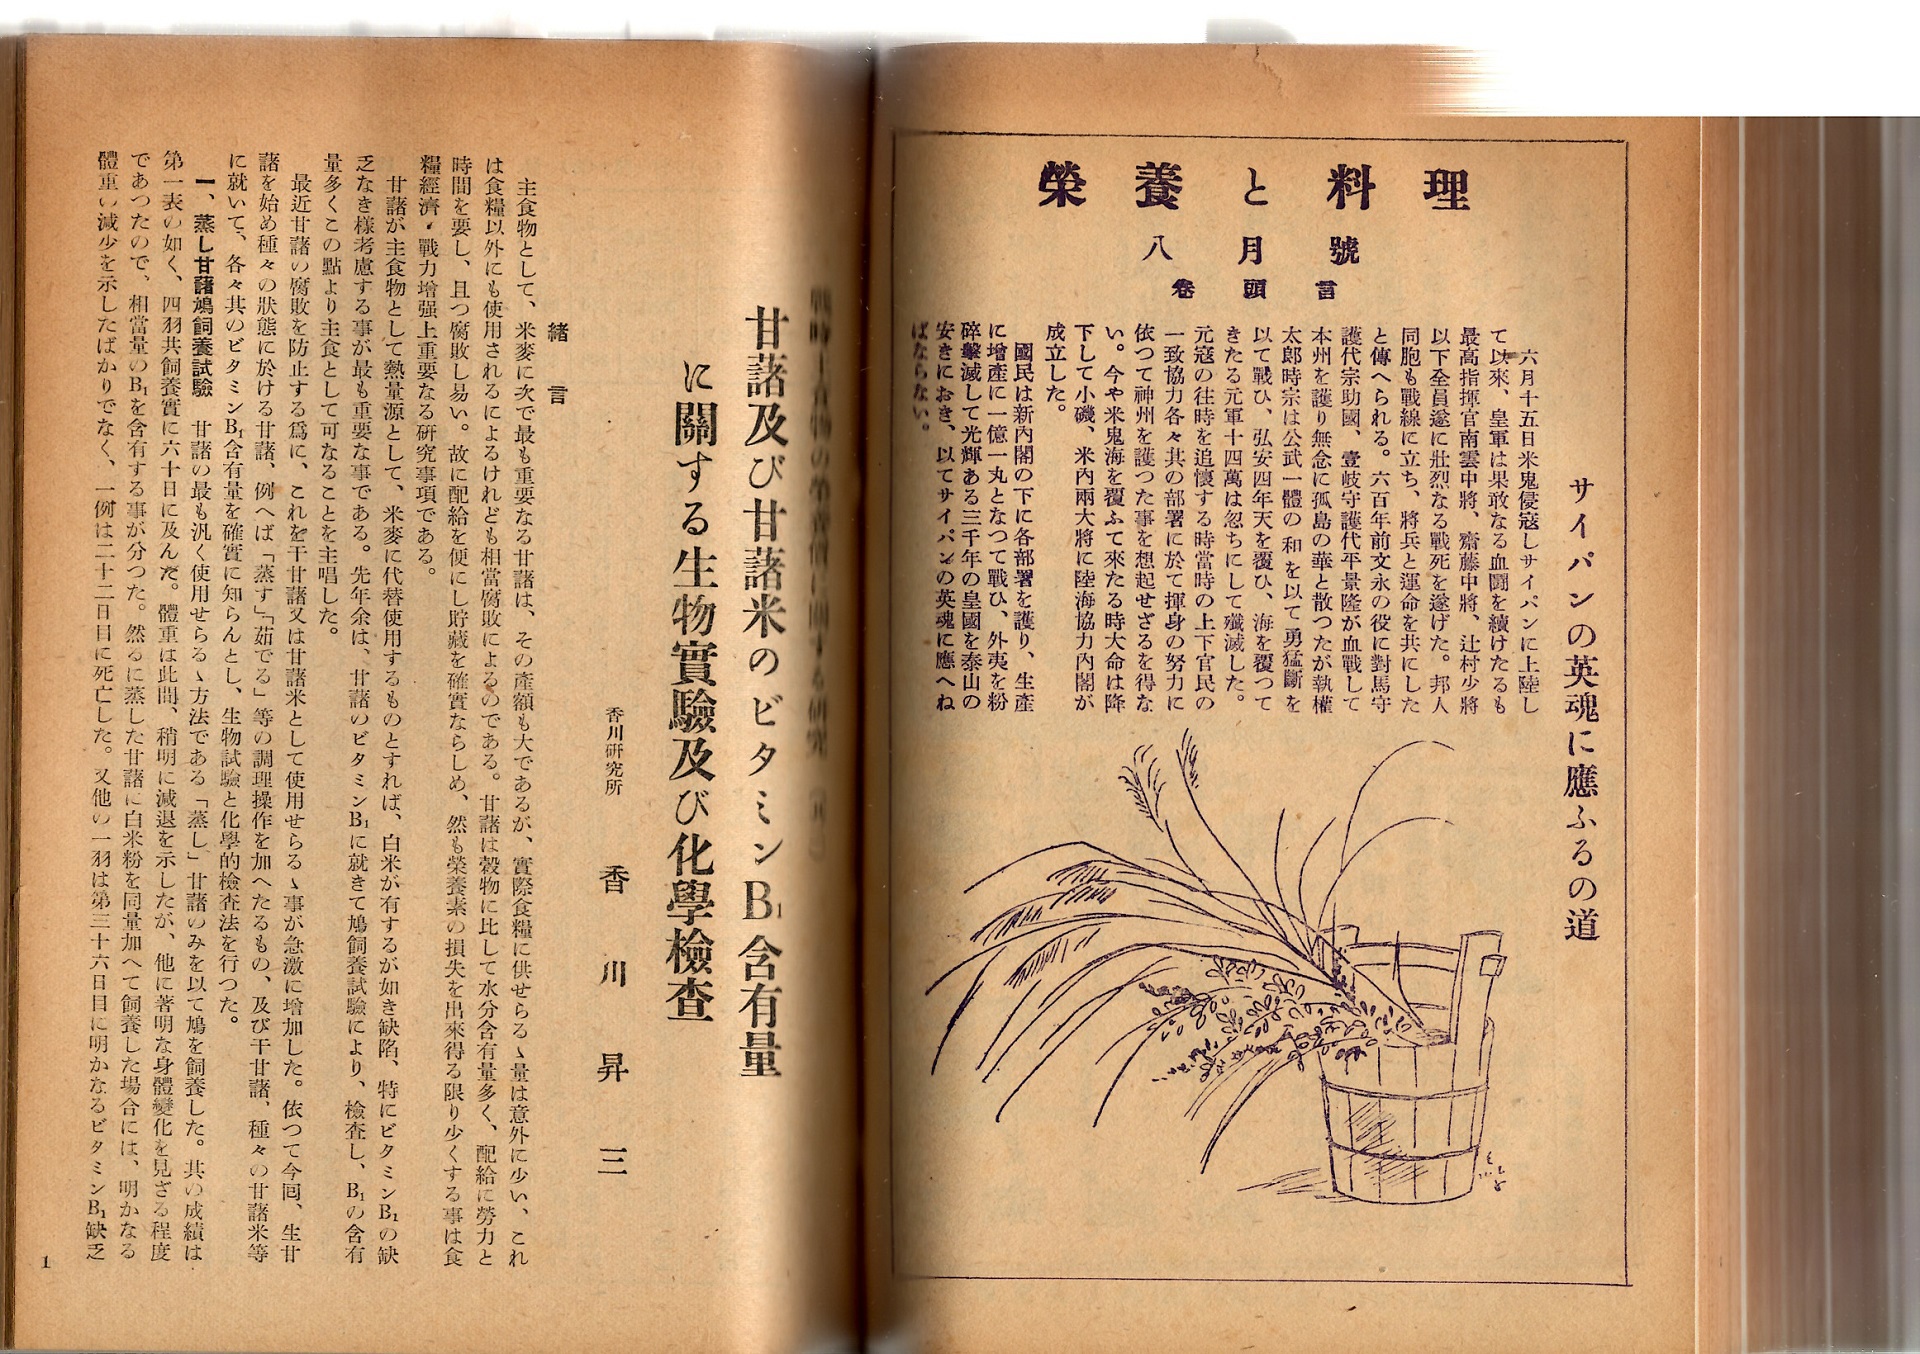 榮養と料理
八月號
卷頭言
サイパンの英魂に應ふるの道
六月十五日米鬼侵寇しサイパンに上陸し
て以來、皇軍は果敢なる血鬪を續けたるも
最高指揮官南雲中將、齋藤中將、辻村少將
以下全員遂に壯烈なる戰死を遂げた。邦人
同胞も戰線に立ち、將兵と運命を共にした
と傳へられる。六百年前文永の役に對馬守
護代宗助國、壹岐守護代平景隆が血戰して
本州を護り無念に孤島の華と散つたが執權
太郎時宗は公武一體の和を以て勇猛斷を
以て戰ひ、弘安四年天を覆ひ、海を覆つて
きたる元軍十四萬は忽ちにして殲滅した。
元寇の往時を追懷する時當時の上下官民の
一致協力各々其の部署に於て揮身の努力に
依つて神州を護つた事を想起せざるを得な
い。今や米鬼海を覆ふて來たる時大命は降
下して小磯、米內兩大將に陸海協力內閣が
成立した。
國民は新內閣の下に各部署を護り、生產
に增產に一億一丸となつて戰ひ、外夷を粉
碎擊滅して光輝ある三千年の皇國を泰山の
安きにおき、以てサイパンの英魂に應へね
ばならない。
戰時主食物の榮養價に關する研究
甘藷及び甘藷米のビタミンB₁含有量
に關する生物實驗及び化學檢査
香川研究所 香川昇三
緒言
主食物として、米麥に次で最も重要なる甘藷は、その產額も大であるが、實際食糧に供せらるゝ量は意外に少い、これ
は食糧以外にも使用されるによるけれども相當腐敗によるのである。甘藷は穀物に比して水分含有量多く、配給に勞力と
時間を要し、且つ腐敗し易い。故に配給を便にし貯藏を確實ならしめ、然も榮養素の損失を出來得る限り少くする事は食
糧經濟・戰力增强上重要なる研究事項である。
甘藷が主食物として熱量源として、米麥に代替使用するものとすれば、白米が有するが如き缺陷、特にビタミンB₁の缺
乏なき樣考慮する事が最も重要な事である。先年余は、甘藷のビタミンB₁に就きて鳩飼養試驗により、檢査し、B₁の含有
量多くこの點より主食として可なることを主唱した。
最近甘藷の腐敗を防止する爲に、これを干甘藷又は甘藷米として使用せらるゝ事が急激に增加した。依つて今囘、生甘
藷を始め種々の狀態に於ける甘藷、例へば「蒸す」「茹でる」等の調理操作を加へたるもの、及び干甘藷、種々の甘藷米等
に就いて、各々其のビタミンB₁含有量を確實に知らんとし、生物試驗と化學的檢査法を行つた。
一、蒸し甘藷鳩飼養試驗 甘藷の最も汎く使用せらるゝ方法である「蒸し」甘藷のみを以て鳩を飼養した。其の成績は
第一表の如く、四羽共飼養實に六十日に及んだ。體重は此間、稍明に減退を示したが、他に著明な身體變化を見ざる程度
であつたので、相當量のB₁を含有する事が分つた。然るに蒸した甘藷に白米粉を同量加へて飼養した場合には、明かなる
體重の減少を示したばかりでなく、一例は二十二日目に死亡した。又他の一羽は第三十六日目に明かなるビタミンB₁缺乏
1